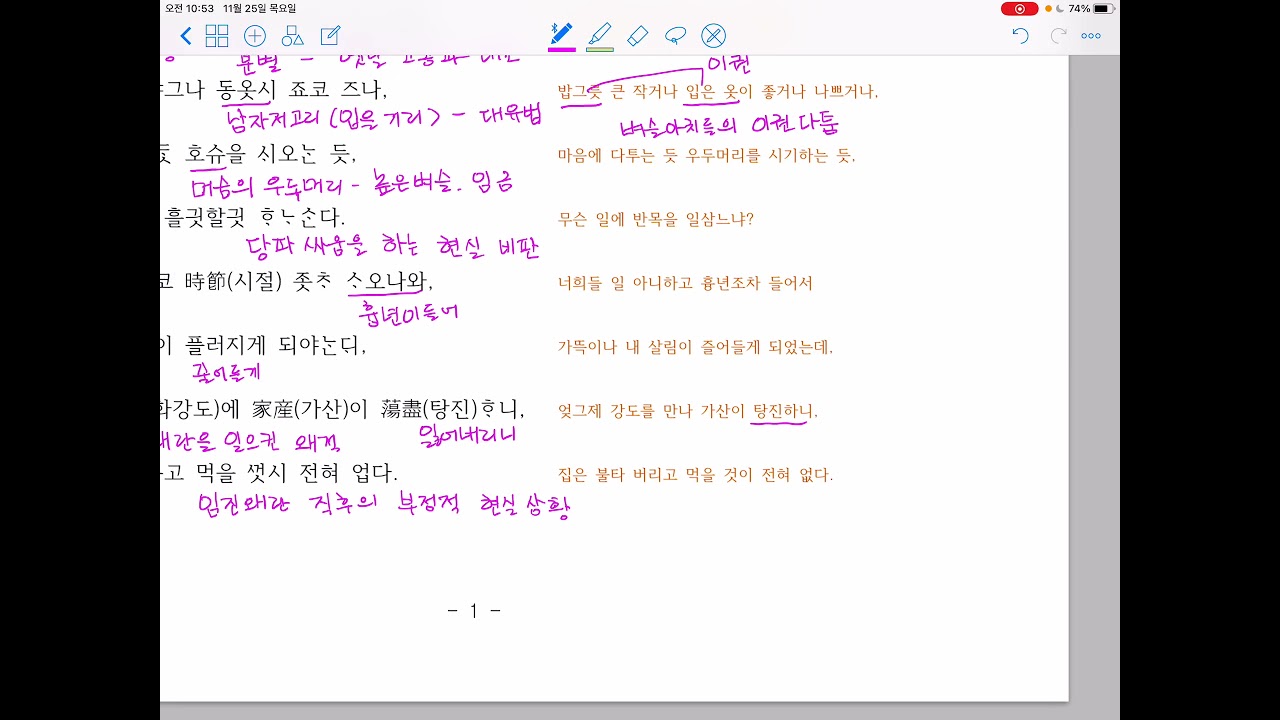 오전 10:53 11월 25일 목요일 74%
문벌
이권
그나 동옷시 죠코 즈나, 밥그릇 큰 작거나 입은 옷이 좋거나 나쁘거나,
남자저고리(입을거리) - 대유법 벼슬아치들의 이권다툼
호슈을 시오는 듯, 마음에 다투는 듯 우두머리를 시기하는 듯,
머슴의 우두머리 - 높은벼슬. 임금
흘긧할긧 ᄒᆞᄂᆞ슨다. 무슨 일에 반목을 일삼느냐?
당파싸움을 하는 현실 비판
코 時節(시절) 좃ᄎᆞ ᄉᆞ오나와, 너희들 일 아니하고 흉년조차 들어서
흉년이들어
이 플러지게 되야는ᄃᆡ, 가뜩이나 내 살림이 즐어들게 되었는데,
줄어들게
화강도)에 家産(가산)이 蕩盡(탕진)ᄒᆞ니, 엊그제 강도를 만나 가산이 탕진하니,
왜란을 일으킨 왜적 잃어버리니
고 먹을 껏시 전혀 업다. 집은 불타 버리고 먹을 것이 전혀 없다.
임진왜란 직후의 부정적 현실상황
- 1 -